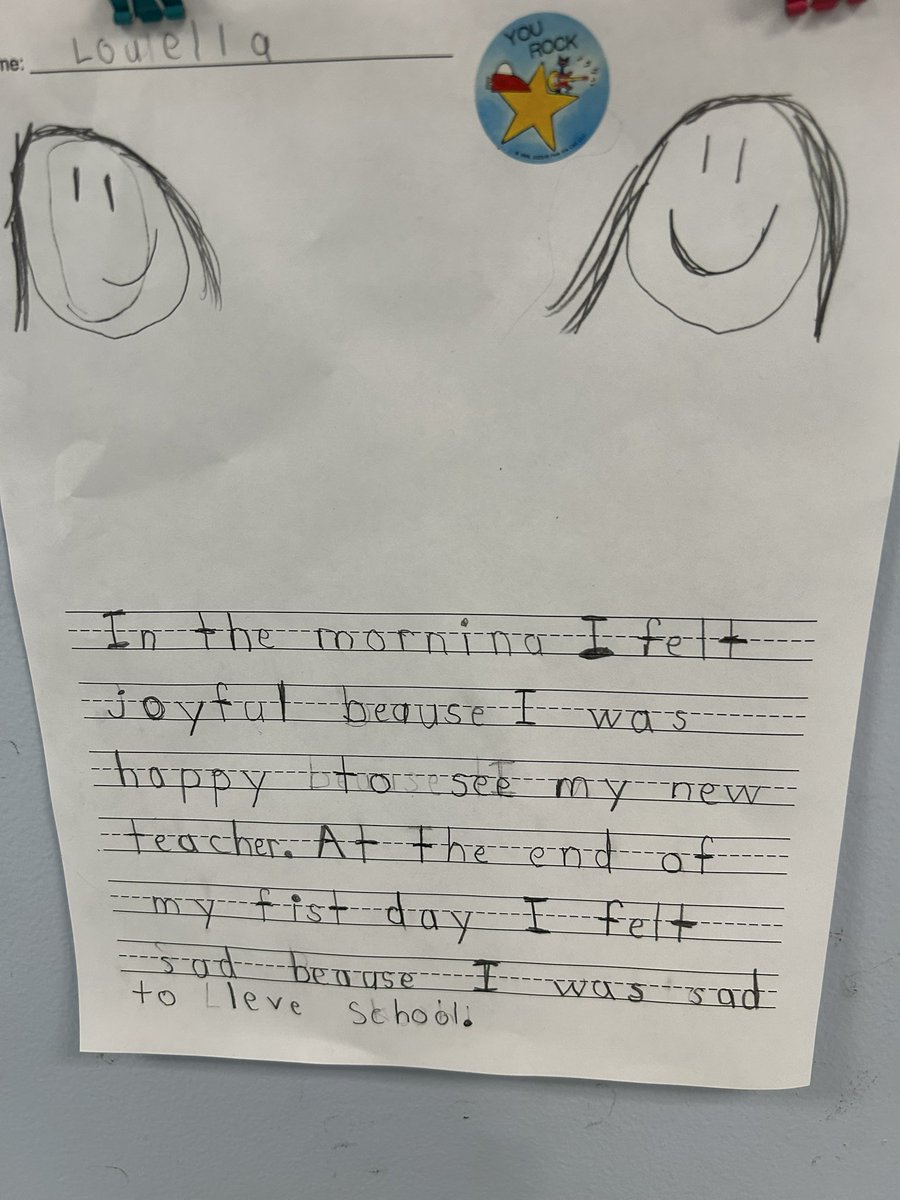 me: Louella
YOU
ROCK
In the morning I felt
joyful beause I was
happy to see my new
teacher. At the end of
my fist day I felt
sad beause I was sad
to leve school.